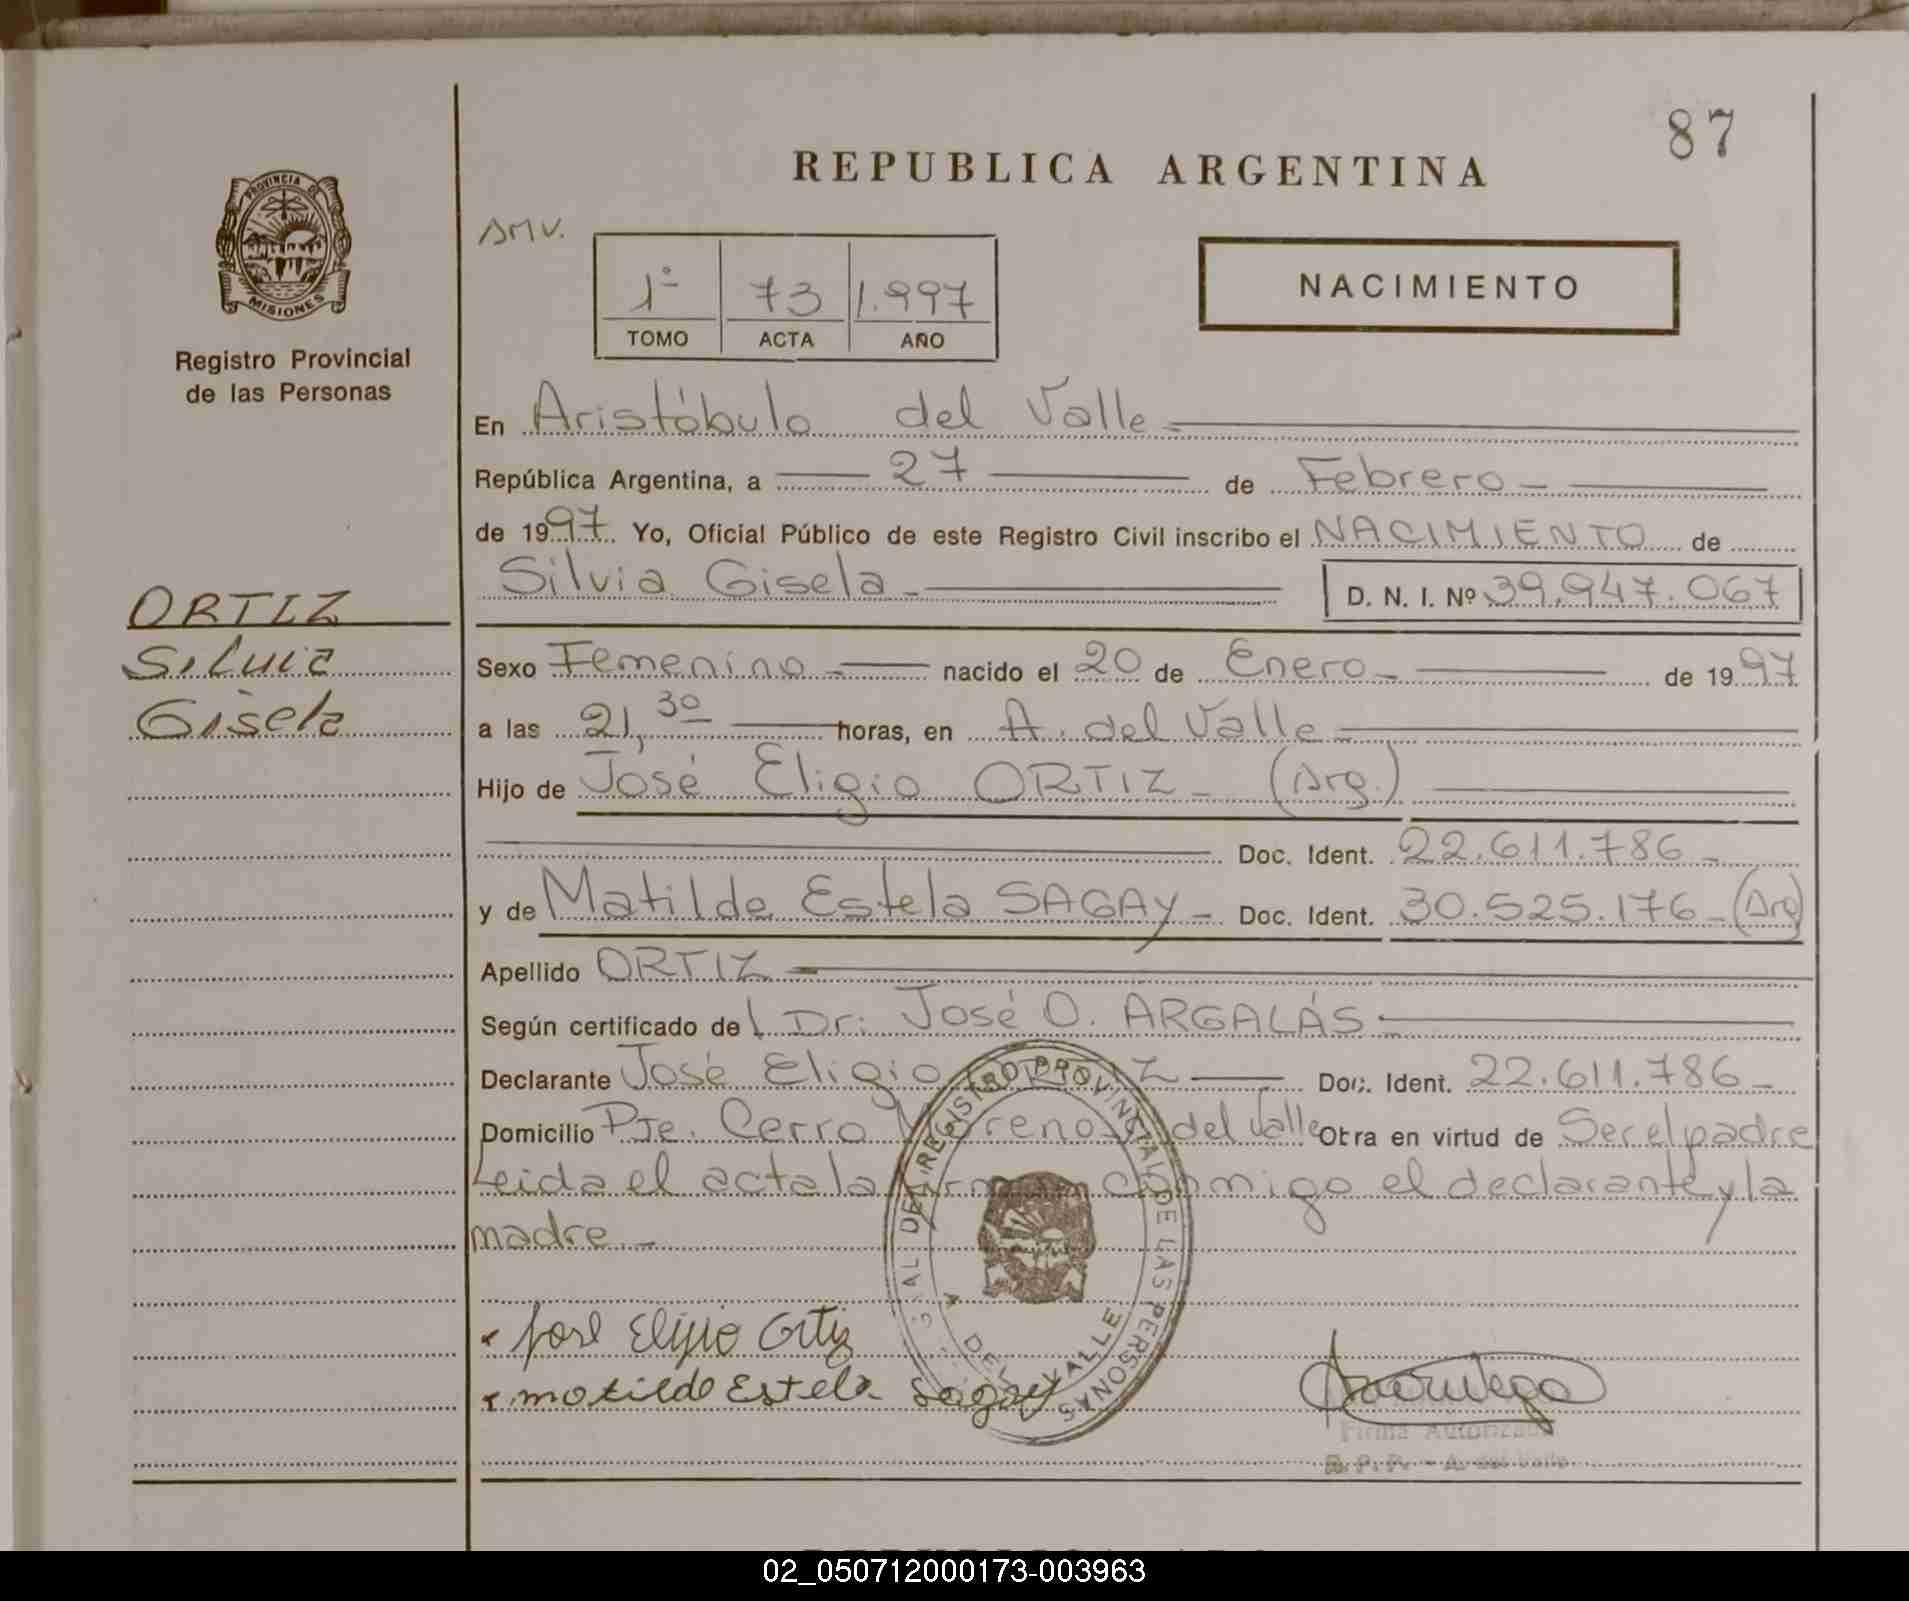 87
REPUBLICA ARGENTINA
PROVINCIA DE
MISIONES
Registro Provincial
de las Personas
1º 73 1.997
TOMO ACTA AÑO
NACIMIENTO
En Aristóbulo del Valle
República Argentina, a 27 de Febrero
de 1997. Yo, Oficial Público de este Registro Civil inscribo el NACIMIENTO de
Silvia Gisela D. N. I. Nº 39.947.067
ORTIZ
Silvia
Gisela
Sexo Femenino nacido el 20 de Enero de 1997
a las 21,30 horas, en A. del Valle
Hijo de José Eligio ORTIZ (Arg.)
Doc. Ident. 22.611.786
y de Matilde Estela SAGAY Doc. Ident. 30.525.176 (Arg)
Apellido ORTIZ
Según certificado del Dr. José O. ARGALÁS
Declarante José Eligio ORTIZ Doc. Ident. 22.611.786
Domicilio Pje. Cerro Moreno A. del Valle Otra en virtud de Ser el padre
Leida el acta la firman conmigo el declarante y la
madre
DEL REGISTRO PROVINCIAL DE LAS PERSONAS
DEL VALLE
José Eligio Ortiz
Matilde Estela Sagay
Firma Autorizada
R. P. P. - A. del Valle
02_050712000173-003963